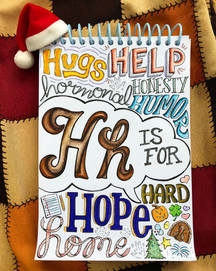 Hugs HELP
hormonal HONESTY
HUMOR
Hh IS FOR
HARD
HOPE
home